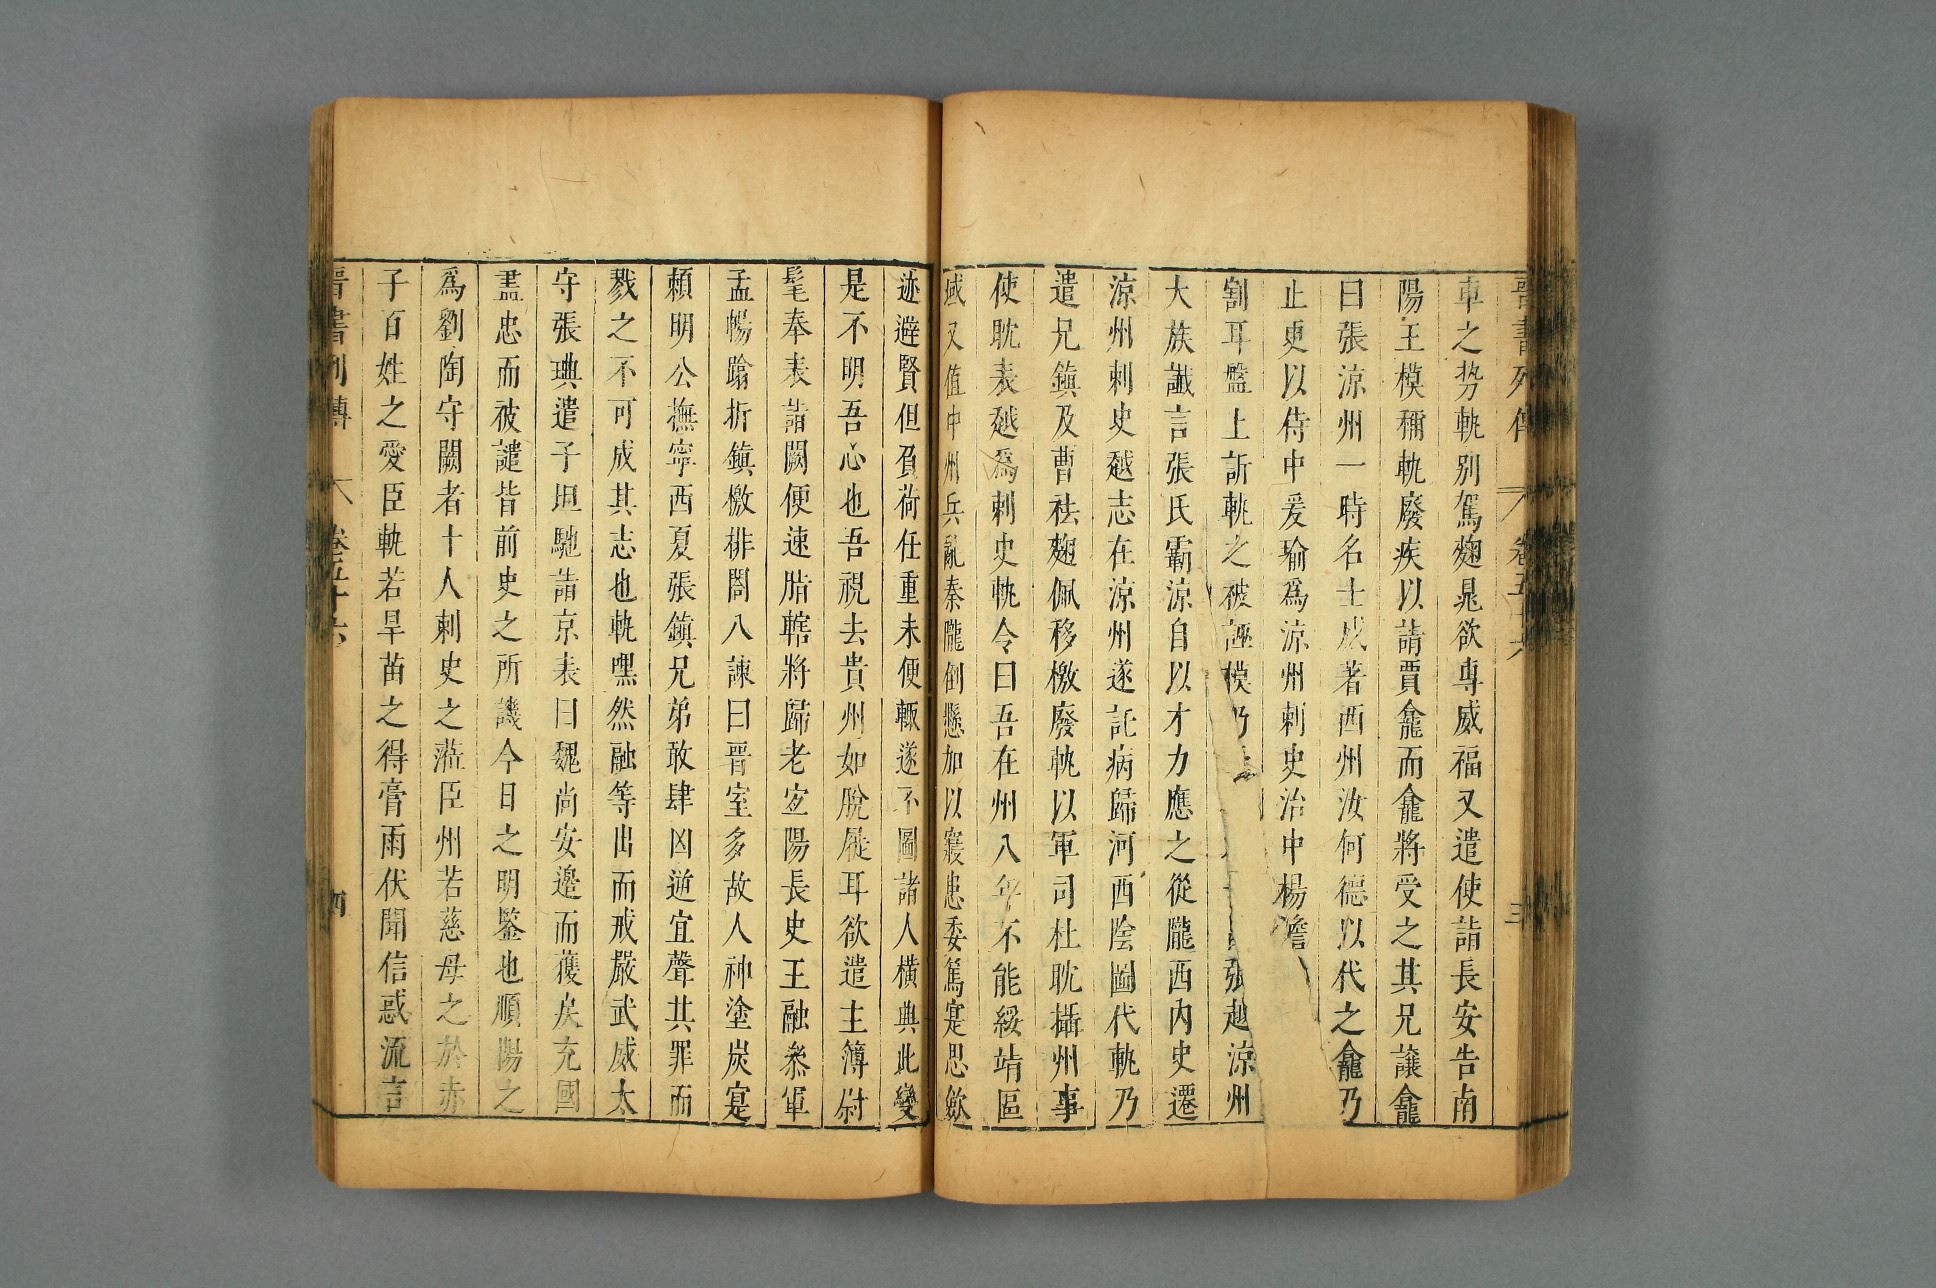 晉書列傳 卷五十六 三
車之势軌别駕麹晁欲專威福又遣使詣長安告南
陽王模稱軌廢疾以請賈龕而龕將受之其兄讓龕
曰張涼州一時名士威著西州汝何德以代之龕乃
止更以侍中爰瑜爲涼州刺史治中楊澹
割耳盤上訴軌之被誣模乃 張越涼州
大族讖言張氏霸涼自以才力應之從隴西内史遷
涼州刺史越志在涼州遂託病歸河西陰圖代軌乃
遣兄鎮及曹袪麹佩移檄廢軌以軍司杜耽攝州事
使耽表越爲刺史軌令曰吾在州八年不能綏靖區
域又值中州兵亂秦隴倒懸加以寢患委篤寔思斂
迹避賢但負荷任重未便輒遂不圖諸人橫興此變
是不明吾心也吾視去貴州如脫屣耳欲遣主簿尉
髦奉表詣闕便速脂轄將歸老宜陽長史王融參軍
孟暢蹋折鎮檄排閤入諫曰晉室多故人神塗炭寔
賴明公撫寧西夏張鎮兄弟敢肆凶逆宜聲其罪而
戮之不可成其志也軌嘿然融等出而戒嚴武威太
守張琠遣子坦馳詣京表曰魏尚安邊而獲戾充國
盡忠而被譴皆前史之所譏今日之明鑒也順陽之
爲劉陶守闕者十人刺史之蒞臣州若慈母之於赤
子百姓之愛臣軌若旱苗之得膏雨伏聞信惑流言
晉書列傳 卷五十六 四